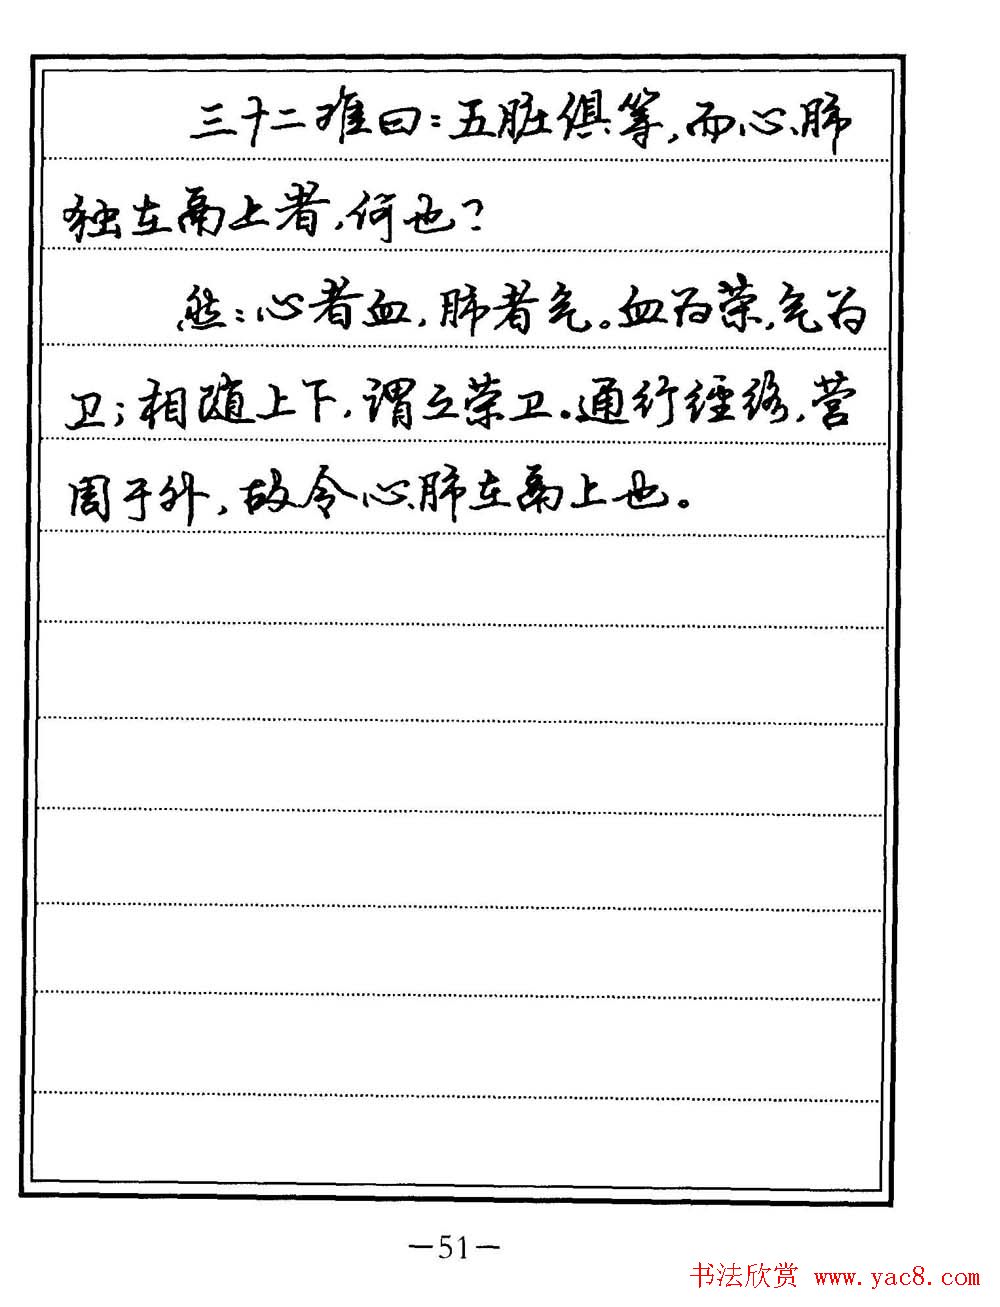 三十二难曰：五脏俱等，而心、肺
独在鬲上者，何也？
然：心者血，肺者气。血为荣，气为
卫；相随上下，谓之荣卫。通行经络，营
周于外，故令心、肺在鬲上也。
—51—
书法欣赏 www.yac8.com